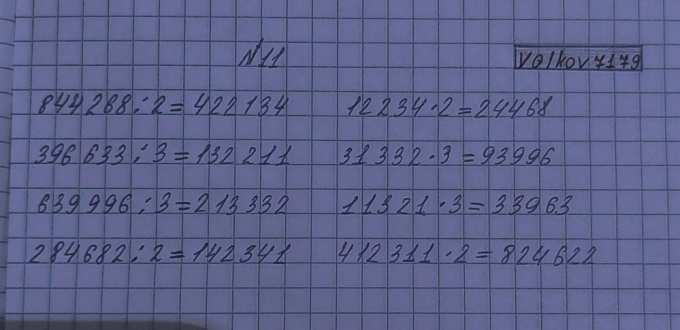 N11
Volkov7179
844268:2=422134
12234·2=24468
396633:3=132211
31332·3=93996
639996:3=213332
11321·3=33963
284682:2=142341
412311·2=824622